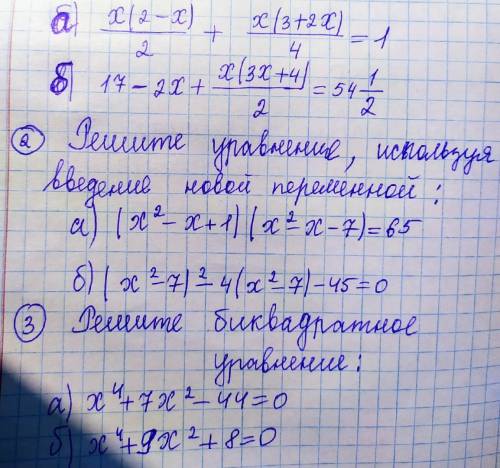 а) x(2-x)/2 + x(3+2x)/4 = 1
б) 17 - 2x + x(3x+4)/2 = 54 1/2
② Решите уравнение, используя
введение новой переменной:
а) (x² - x + 1)(x² - x - 7) = 65
б) (x² - 7)² - 4(x² - 7) - 45 = 0
③ Решите биквадратное
уравнение:
а) x⁴ + 7x² - 44 = 0
б) x⁴ + 9x² + 8 = 0